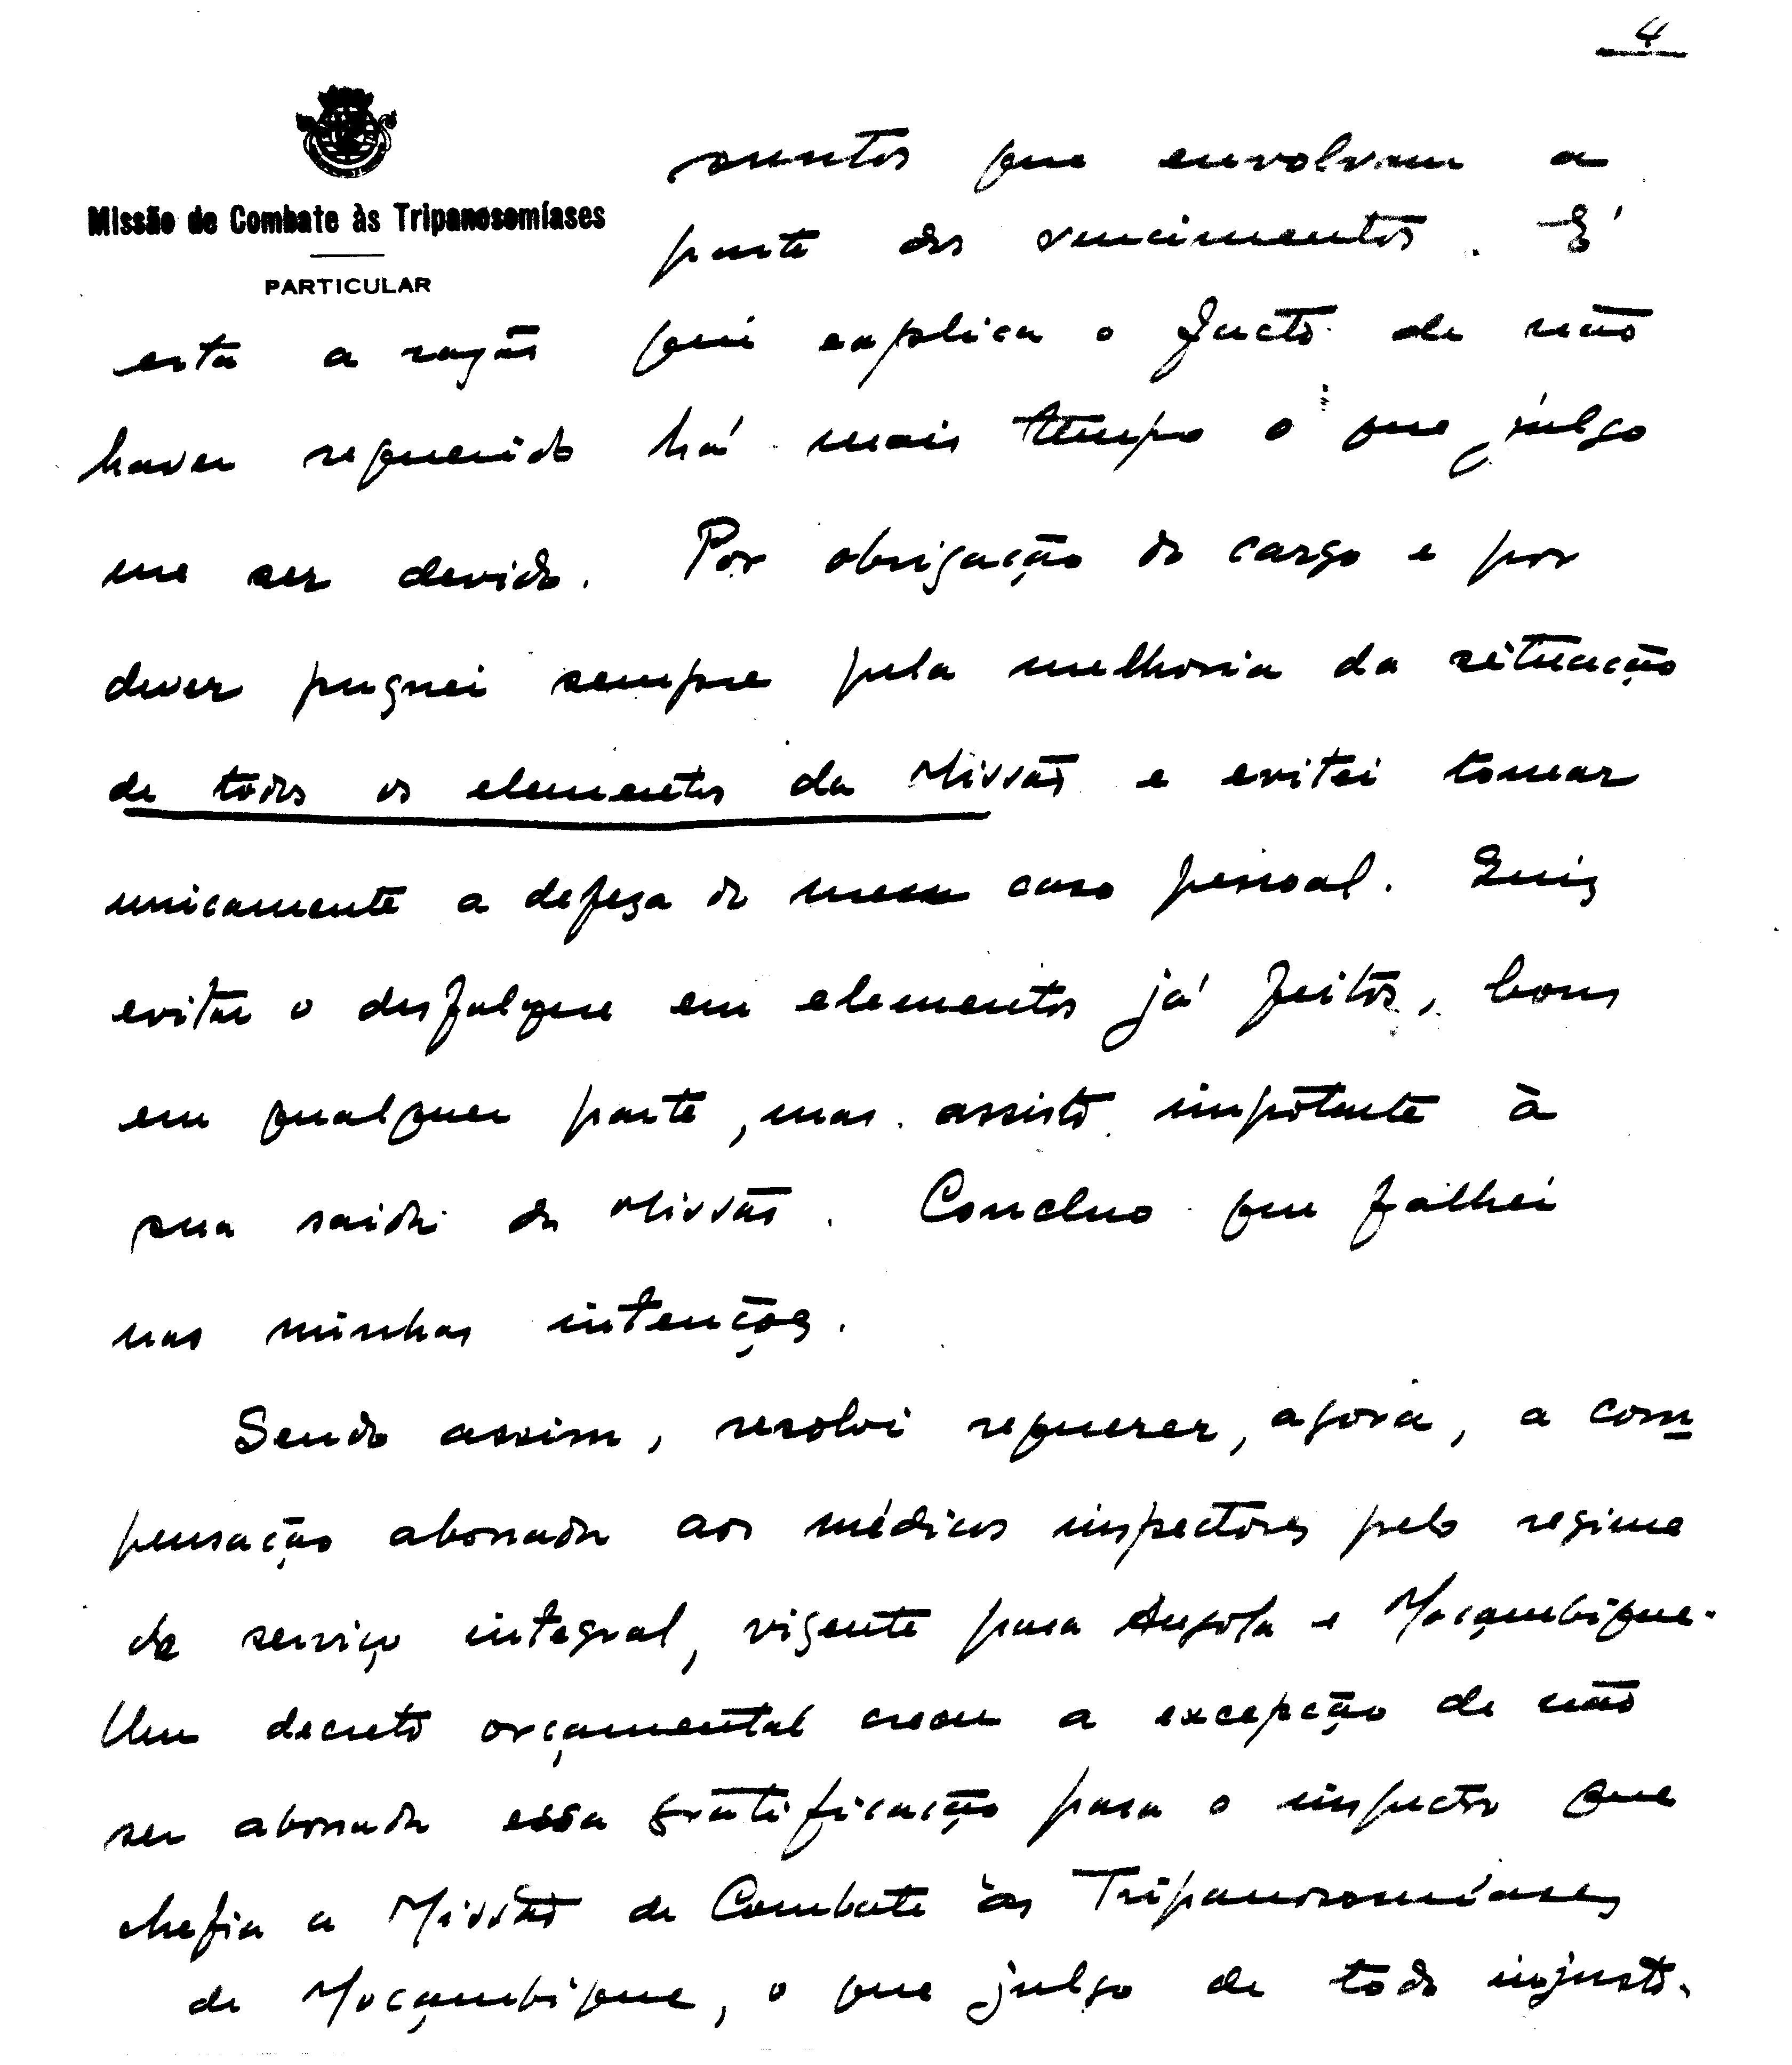 4
Missão de Combate às Tripanosomíases
PARTICULAR
suntos que envolvam a
parte dos vencimentos. É
esta a razão que explica o facto de não
haver requerido há mais tempo o que julgo
me ser devido. Por obrigação do cargo e por
dever pugnei sempre pela melhoria da situação
de todos os elementos da Missão e evitei tomar
unicamente a defeza do meu caso pessoal. Quiz
evitar o desfalque em elementos já feitos, bons
em qualquer parte, mas assisto impotente à
sua saida da Missão. Concluo que falhei
nas minhas intenções.
Sendo assim, resolvi requerer, agora, a com
pensação abonada aos médicos inspectores pelo regime
de serviço integral, vigente para Angola e Moçambique.
Um decreto orçamental creou a excepção de não
ser abonada essa gratificação para o inspector que
chefia a Missão de Combate às Tripanosomíases
de Moçambique, o que julgo de todo injusto.